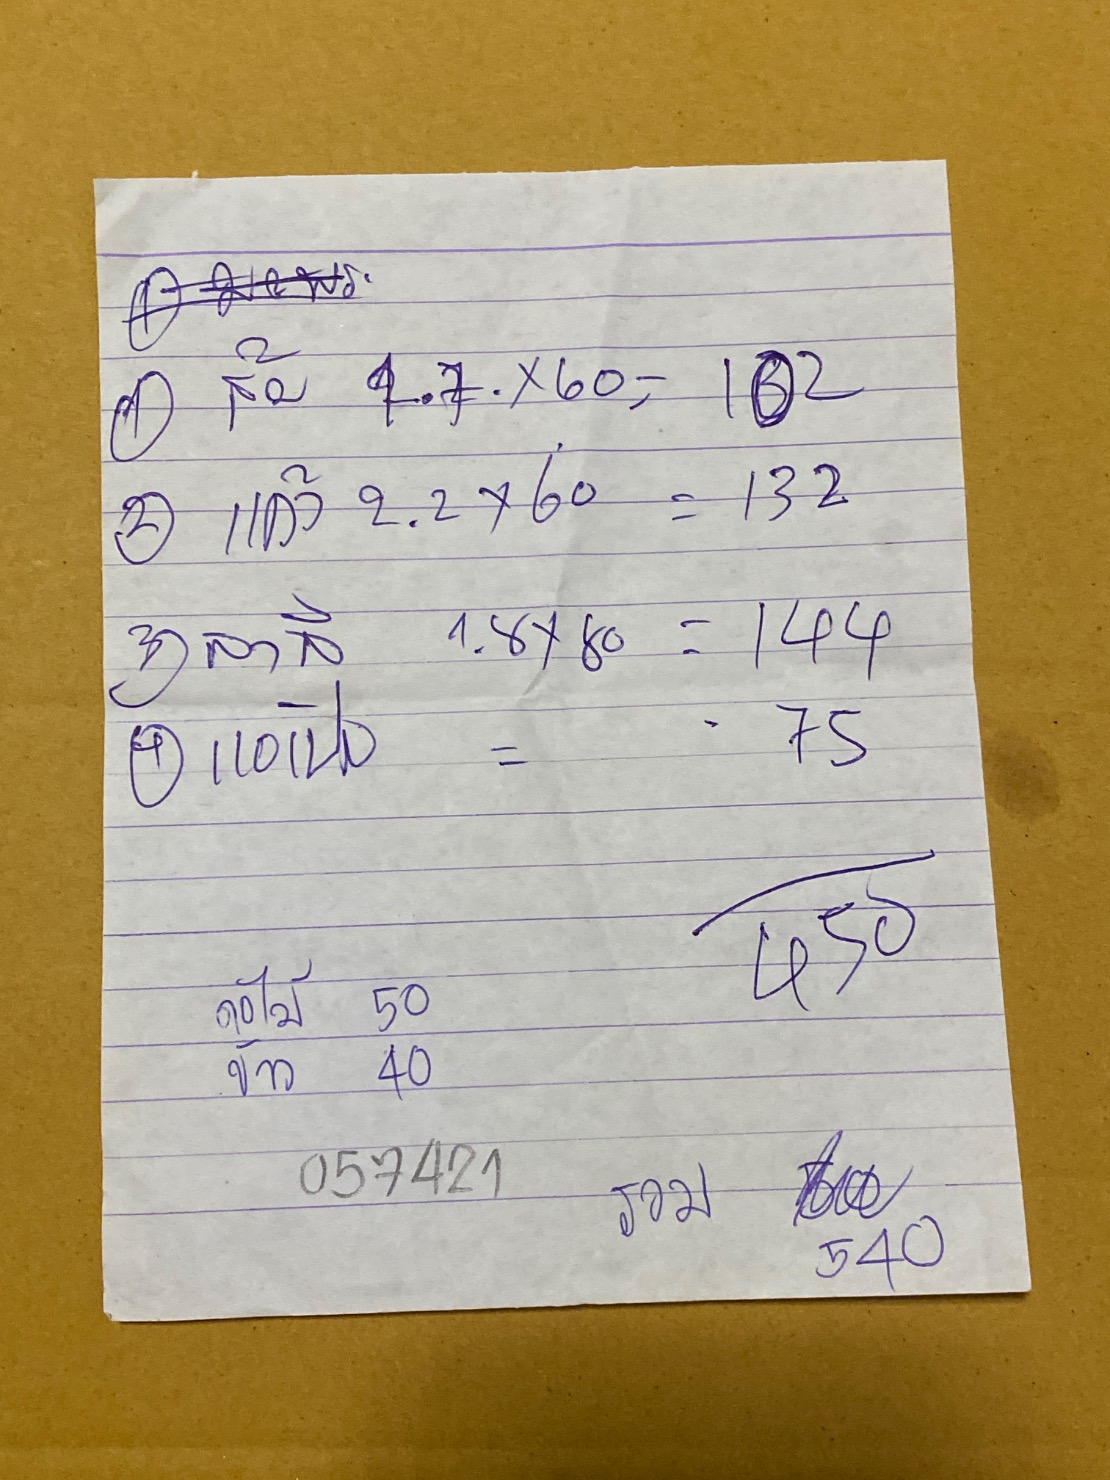 ① มะพร.
① ส้ม 1.7.×60,= 102
② แก้ว 2.2×60 = 132
3) สาลี่ 1.8×80 = 144
④ แอปเปิ้ล = 75
450
ดอกไม้ 50
ข้าว 40
057421
รวม
540